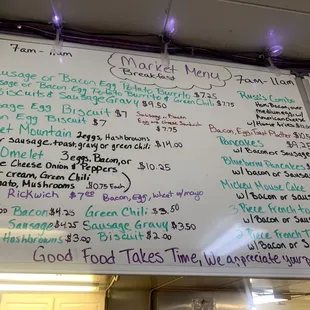 7am - 11am
Market Menu
7am-11am
Breakfast
Sausage or Bacon Egg Potato Burrito $7.25
Sausage or Bacon Egg Potato Burrito & Green Chili
Biscuits & Sausage Gravy $9.50
Egg Biscuit $7
Sausage or Bacon
Egg and Cheese Sandwich
$7.75
Egg Biscuit $7
Mountain 2 eggs, Hashbrowns
or Sausage, toast, gravy or green chili $14.00
Omelet 3 eggs, Bacon, or
Cheese Onion & Peppers $10.25
cream, Green Chili,
Tomato, Mushrooms (0.75 Each)
RicKwich $7.00 Bacon, Egg, wheat w/mayo
Bacon $4.25 Green Chili $3.50
Sausage $4.25 Sausage Gravy $3.50
Hashbrowns $3.00 Biscuit $2.00
Combo
Ham, Bacon, over
American Cheese
w/ Home fries
Bacon, Eggs, Toast Platter
Pancakes
w/ Bacon or Sausage
Blueberry Pancakes
w/ Bacon or Sausage
Mickey Mouse Cake
w/ Bacon or
Piece French
w/ Bacon or Sau
Piece French T
w/ Bacon or S
Good Food Takes Time, We appreciate your